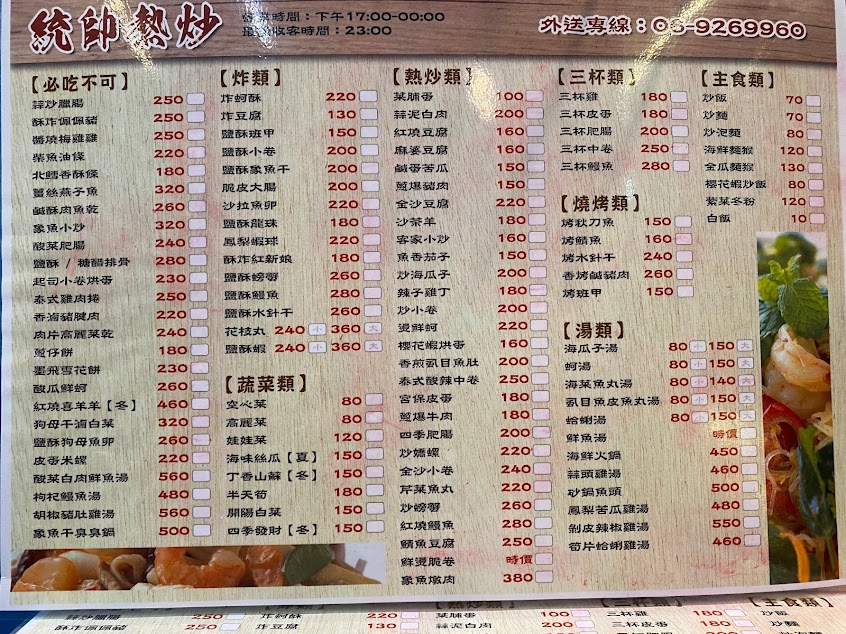 統帥熱炒
營業時間：下午17:00-00:00
最後收客時間：23:00
外送專線：06-9269960
【必吃不可】
蒜炒臘腸 250
酥炸佩佩豬 250
醬燒梅雞雞 250
柴魚油條 220
北鱈香酥條 180
薑絲燕子魚 320
鹹酥肉魚乾 260
象魚小炒 320
酸菜肥腸 240
鹽酥 / 糖醋排骨 280
起司小卷烘蛋 230
泰式雞肉捲 250
香滷豬腱肉 220
肉片高麗菜乾 240
蔥仔餅 180
墨飛雪花餅 230
酸瓜鮮蚵 260
紅燒喜羊羊【冬】 460
狗母干滷白菜 320
鹽酥狗母魚卵 260
皮蛋米螺 220
酸菜白肉鮮魚湯 560
枸杞鰻魚湯 480
胡椒豬肚雞湯 560
象魚干臭臭鍋 500
【炸類】
炸蚵酥 220
炸豆腐 130
鹽酥班甲 150
鹽酥小卷 200
鹽酥象魚干 200
脆皮大腸 200
沙拉魚卵 220
鹽酥龍珠 180
鳳梨蝦球 220
酥炸紅新娘 180
鹽酥螃蟹 280
鹽酥鰻魚 280
鹽酥水針干 260
花枝丸 240 小 360 大
鹽酥蝦 240 小 360 大
【蔬菜類】
空心菜 80
高麗菜 80
娃娃菜 120
海味絲瓜【夏】 150
丁香山蘇【冬】 150
半天筍 180
開陽白菜 150
四季發財【冬】 150
【熱炒類】
菜脯蛋 100
蒜泥白肉 200
紅燒豆腐 160
麻婆豆腐 160
鹹蛋苦瓜 150
蔥爆豬肉 150
金沙豆腐 220
沙茶羊 180
客家小炒 160
魚香茄子 150
炒海瓜子 200
辣子雞丁 180
炒小卷 200
燙鮮蚵 220
櫻花蝦烘蛋 160
香煎虱目魚肚 200
泰式酸辣中卷 250
宮保皮蛋 180
蔥爆牛肉 180
四季肥腸 200
炒嬌螺 220
金沙小卷 240
芹菜魚丸 220
炒螃蟹 260
紅燒鰻魚 280
鯖魚豆腐 250
鮮燙脆卷 時價
象魚燉肉 380
【三杯類】
三杯雞 180
三杯皮蛋 180
三杯肥腸 200
三杯中卷 250
三杯鰻魚 280
【燒烤類】
烤秋刀魚 150
烤鯖魚 160
烤水針干 240
香烤鹹豬肉 260
烤班甲 150
【主食類】
炒飯 70
炒麵 70
炒泡麵 80
海鮮麵猴 120
金瓜麵猴 130
櫻花蝦炒飯 80
紫菜冬粉 120
白飯 10
【湯類】
海瓜子湯 80 小 150 大
蚵湯 80 小 150 大
海菜魚丸湯 80 小 140 大
虱目魚皮魚丸湯 80 小 150 大
蛤蜊湯 80 小 150 大
鮮魚湯 時價
海鮮火鍋 450
蒜頭雞湯 460
砂鍋魚頭 500
鳳梨苦瓜雞湯 480
剝皮辣椒雞湯 550
筍片蛤蜊雞湯 460
蒜炒臘腸 250
酥炸佩佩豬 250
炸蚵酥 220
炸豆腐 130
菜脯蛋 100
蒜泥白肉 200
三杯雞 180
三杯皮蛋 180
【主食類】
炒飯 70
炒麵 70